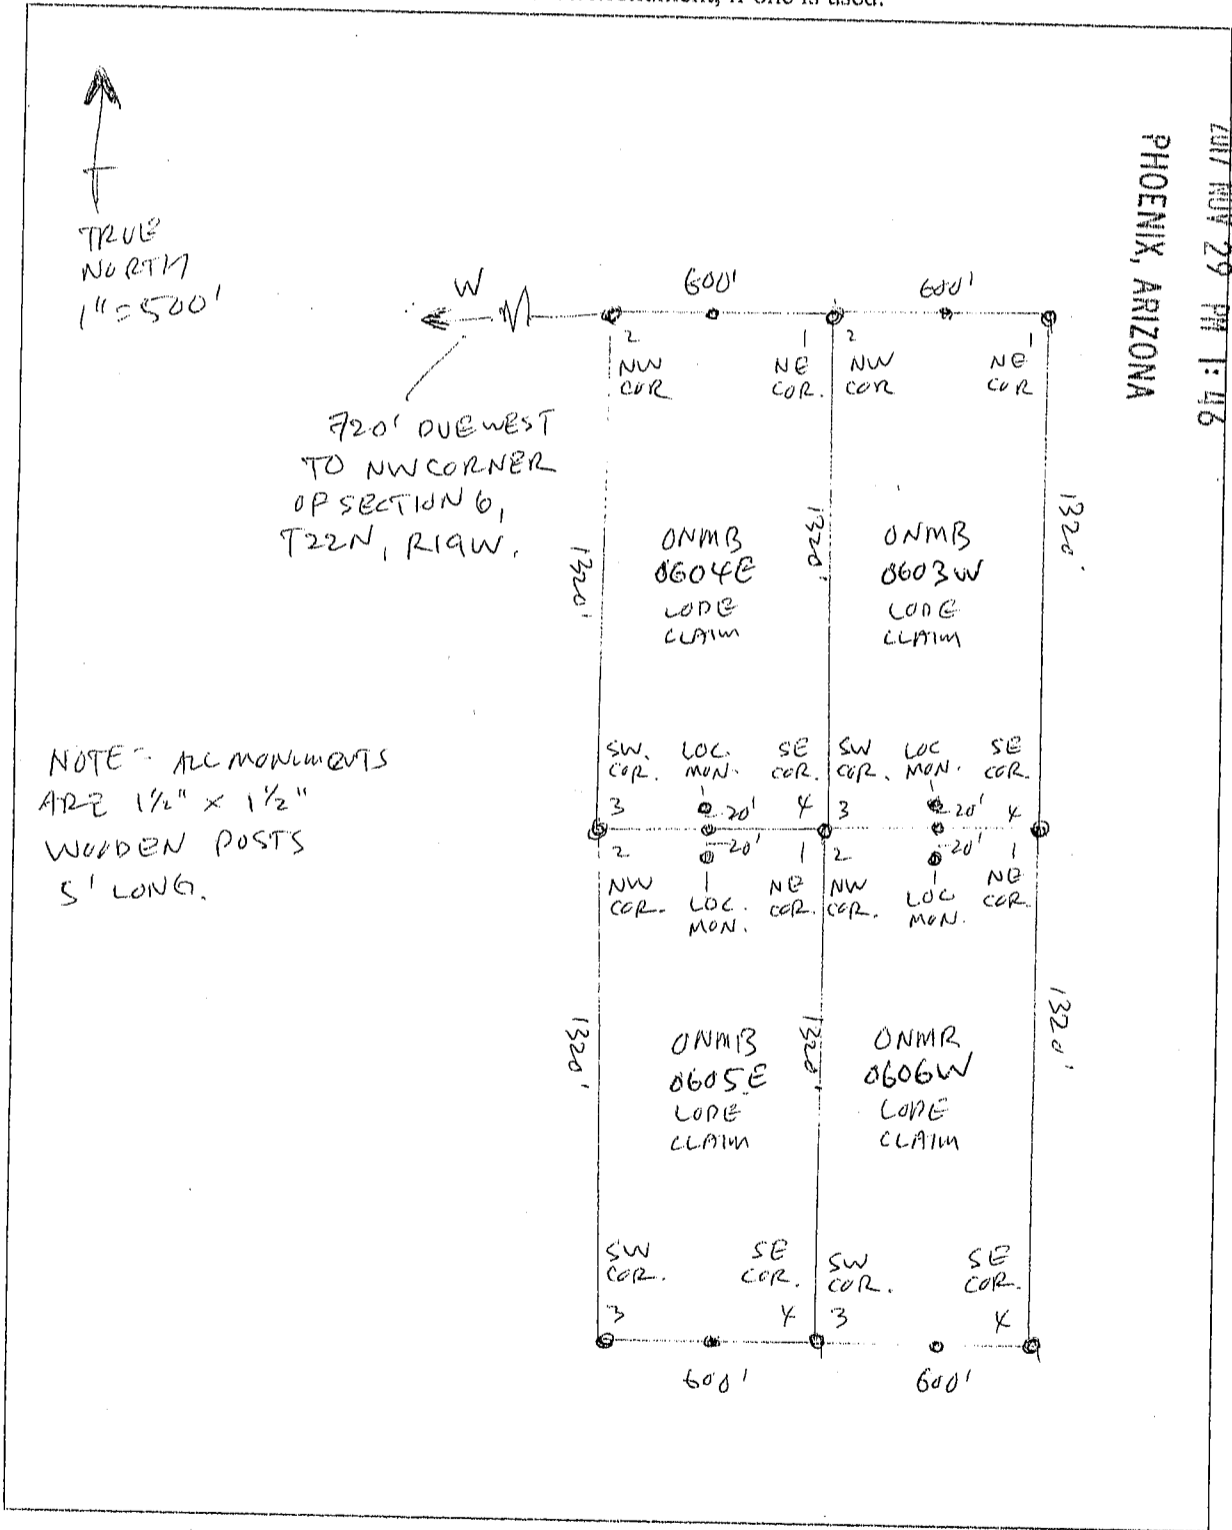 if one is used.
PHOENIX, ARIZONA
NOV 29 PM 1:46
TRUE
NORTH
1"=500'
W
600'
600'
2
1
2
1
NW
COR
NE
COR.
NW
COR
NE
COR
720' DUE WEST
TO NW CORNER
OF SECTION 6,
T22N, R19W.
1320'
1320'
1320'
ONMB
0604E
LODE
CLAIM
ONMB
0603W
LODE
CLAIM
NOTE - ALL MONUMENTS
ARE 1½" x 1½"
WOODEN POSTS
5' LONG.
SW.
COR.
LOC.
MON.
SE
COR.
SW
COR.
LOC
MON.
SE
COR.
3
20'
4
3
20'
4
2
20'
1
2
20'
1
NW
COR.
LOC.
MON.
NE
COR.
NW
COR.
LOC
MON.
NE
COR.
1320'
1320'
1320'
ONMB
0605E
LODE
CLAIM
ONMR
0606W
LODE
CLAIM
SW
COR.
SE
COR.
SW
COR.
SE
COR.
3
4
3
4
600'
600'